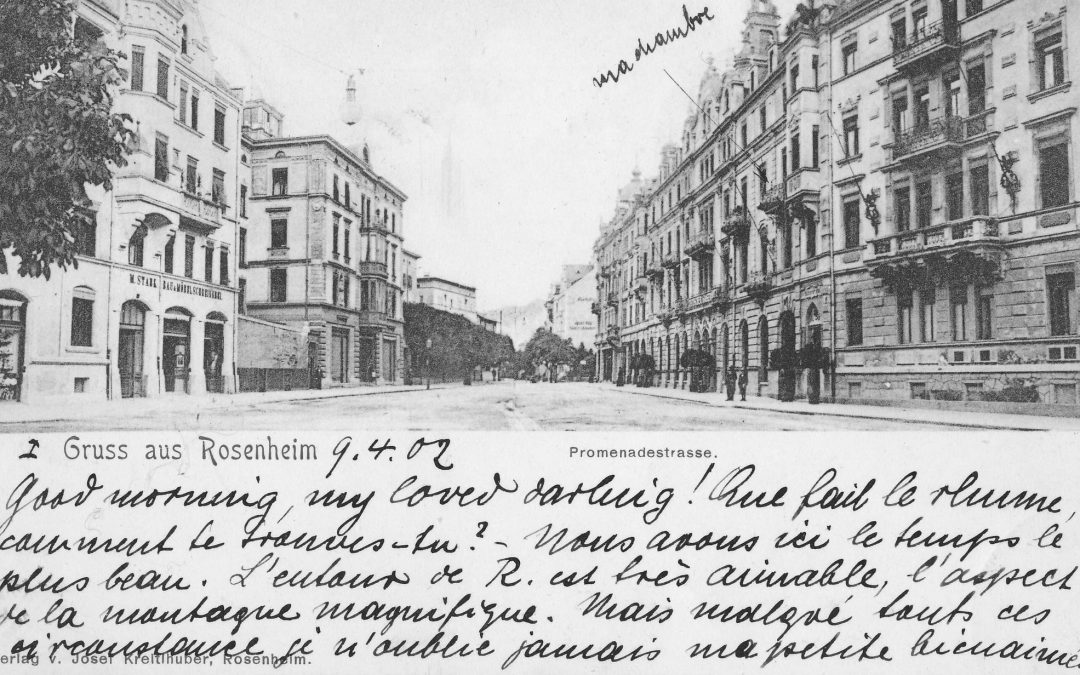 ma chambre
M. STARK BAU & MÖBELSCHREINEREI
I Gruss aus Rosenheim 9.4.02 Promenadestrasse.
Good morning, my loved darling! Que fait le rhume,
comment te trouves-tu? - Nous avons ici le temps le
plus beau. L'entour de R. est très aimable, l'aspect
de la montagne magnifique. Mais malgré touts ces
circonstance je n'oublie jamais ma petite bienaimée
Verlag v. Josef Kreitlhuber, Rosenheim.